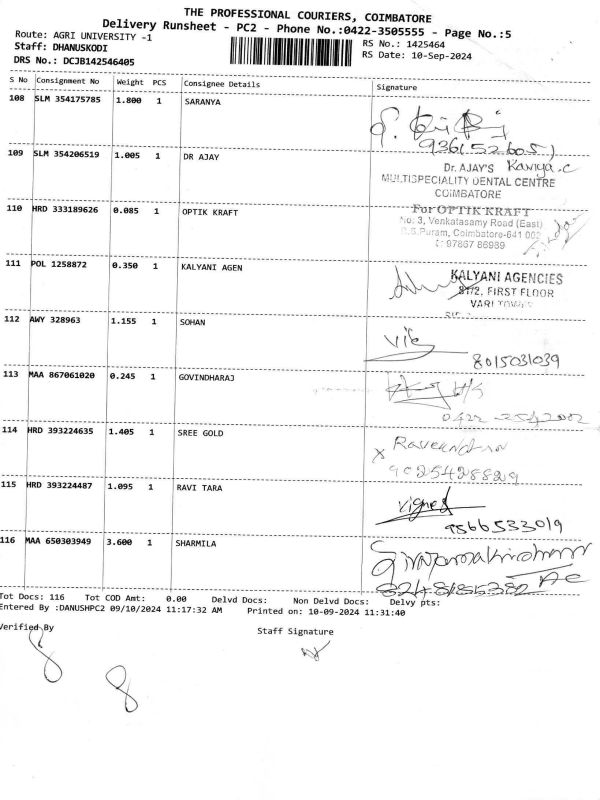 THE PROFESSIONAL COURIERS, COIMBATORE
Delivery Runsheet - PC2 - Phone No.:0422-3505555 - Page No.:5
Route: AGRI UNIVERSITY -1
RS No.: 1425464
Staff: DHANUSKODI
RS Date: 10-Sep-2024
DRS No.: DCJB142546405
S No Consignment No Weight PCS Consignee Details Signature
108 SLM 354175785 1.800 1 SARANYA
109 SLM 354206519 1.005 1 DR AJAY
Dr. AJAY'S Kaviya.c
MULTISPECIALITY DENTAL CENTRE
COIMBATORE
110 HRD 333189626 0.085 1 OPTIK KRAFT
For OPTIK KRAFT
No: 3, Venkatasamy Road (East)
R.S.Puram, Coimbatore-641 002
97867 86989
111 POL 1258872 0.350 1 KALYANI AGEN
KALYANI AGENCIES
81/2, FIRST FLOOR
VARI TOWER
112 AWY 328963 1.155 1 SOHAN
8015031039
113 MAA 867061020 0.245 1 GOVINDHARAJ
114 HRD 393224635 1.405 1 SREE GOLD
9025428829
115 HRD 393224487 1.095 1 RAVI TARA
9566533019
116 MAA 650303949 3.600 1 SHARMILA
Tot Docs: 116 Tot COD Amt: 0.00 Delvd Docs: Non Delvd Docs: Delvy pts:
Entered By :DANUSHPC2 09/10/2024 11:17:32 AM Printed on: 10-09-2024 11:31:40
Verified By
Staff Signature